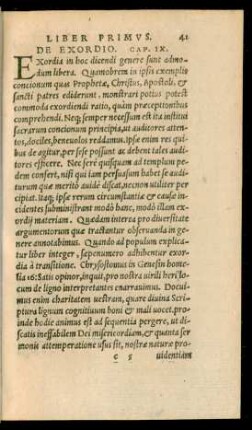 LIBER PRIMVS. 41
DE EXORDIO. CAP. IX.
EXordia in hoc dicendi genere sunt admo-
dum libera. Quamobrem in ipsis exemplis
concionum quas Prophetæ, Christus, Apostoli, &
sancti patres ediderunt, monstrari potius potest
commoda exordiendi ratio, quàm præceptionibus
comprehendi. Neq; semper necessum est ita institui
sacrarum concionum principia, ut auditores atten-
tos, dociles, beneuolos reddamus. ipsæ enim res qui-
bus de agitur, per sese possunt ac debent tales audi-
tores efficere. Nec ferè quisquam ad templum pe-
dem confert, nisi qui iam persuasum habet se audi-
turum quæ meritò auidè discat, necnon utiliter per
cipiat. Itaq; ipsæ rerum circumstantiæ & causæ in-
cidentes subministrant modò hanc, modò illam ex-
ordij materiam. Quædam interea pro diuersitate
argumentorum quæ tractantur obseruanda in ge-
nere annotabimus. Quando ad populum explica-
tur liber integer, sæpenumero adhibentur exor-
dia à transitione. Chrysostomus in Genesin home-
lia 16: Satis opinor, inquit, pro nostra uirili heri lo-
cum de ligno interpretantes enarrauimus. Docui-
mus enim charitatem uestram, quare diuina Scri-
ptura lignum cognitiuum boni & mali uocet. proin-
de hodie animus est ad sequentia pergere, ut di-
scatis ineffabilem Dei misericordiam, & quanta ser
monis attemperatione usus sit, nostræ naturæ pro-
c 5 uidentiam